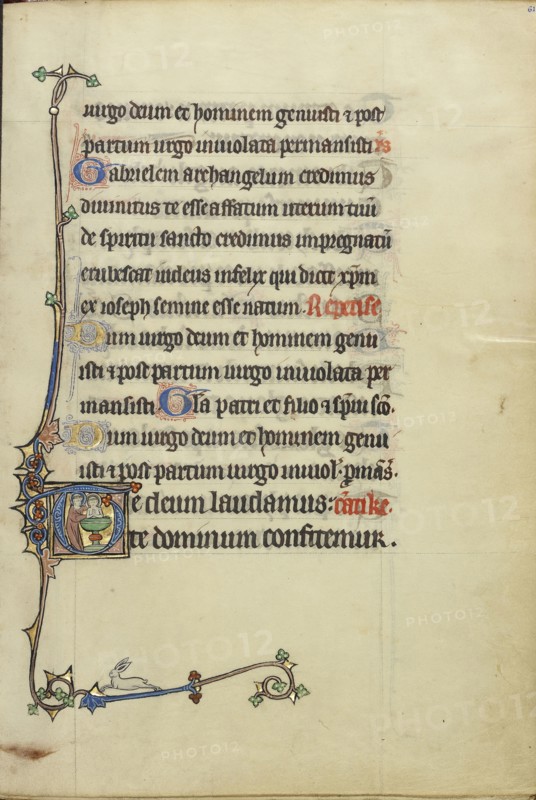 61
uirgo deum et hominem genuisti ⁊ post
partum uirgo inuiolata permansisti
Gabrielem archangelum credimus
diuinitus te esse affatum uterum tuū
de spiritu sancto credimus impregnatū
erubescat iudeus infelix qui dicit xp̄m
ex ioseph semine esse natum. Repetise
Dum uirgo deum et hominem genu
isti ⁊ post partum uirgo inuiolata per
mansisti. Gl̄a patri et filio ⁊ sp̄ui sc̄o.
Dum uirgo deum et hominem genu
isti ⁊ post partum uirgo inuiol. ꝑmās.
Te deum laudamus:
te dominum confitemur.
PHOTO12